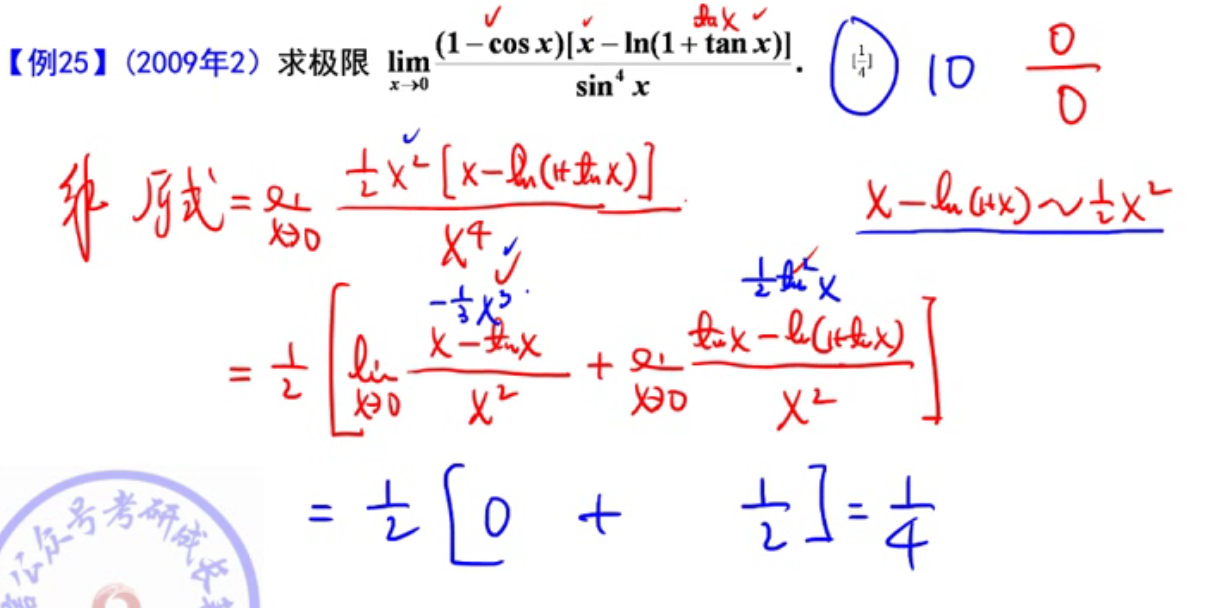 【例25】(2009年2) 求极限 lim x→0 (1−cos x)[x−ln(1+tan x)] / sin⁴ x . [1/4] 10 0/0
tan x
解 原式 = lim x→0 1/2 x² [x−ln(1+tan x)] / x⁴
x−ln(1+x) ~ 1/2 x²
−1/3 x³ 1/2 tan² x
= 1/2 [ lim x→0 (x−tan x) / x² + lim x→0 (tan x−ln(1+tan x)) / x² ]
= 1/2 [ 0 + 1/2 ] = 1/4
公众号考研